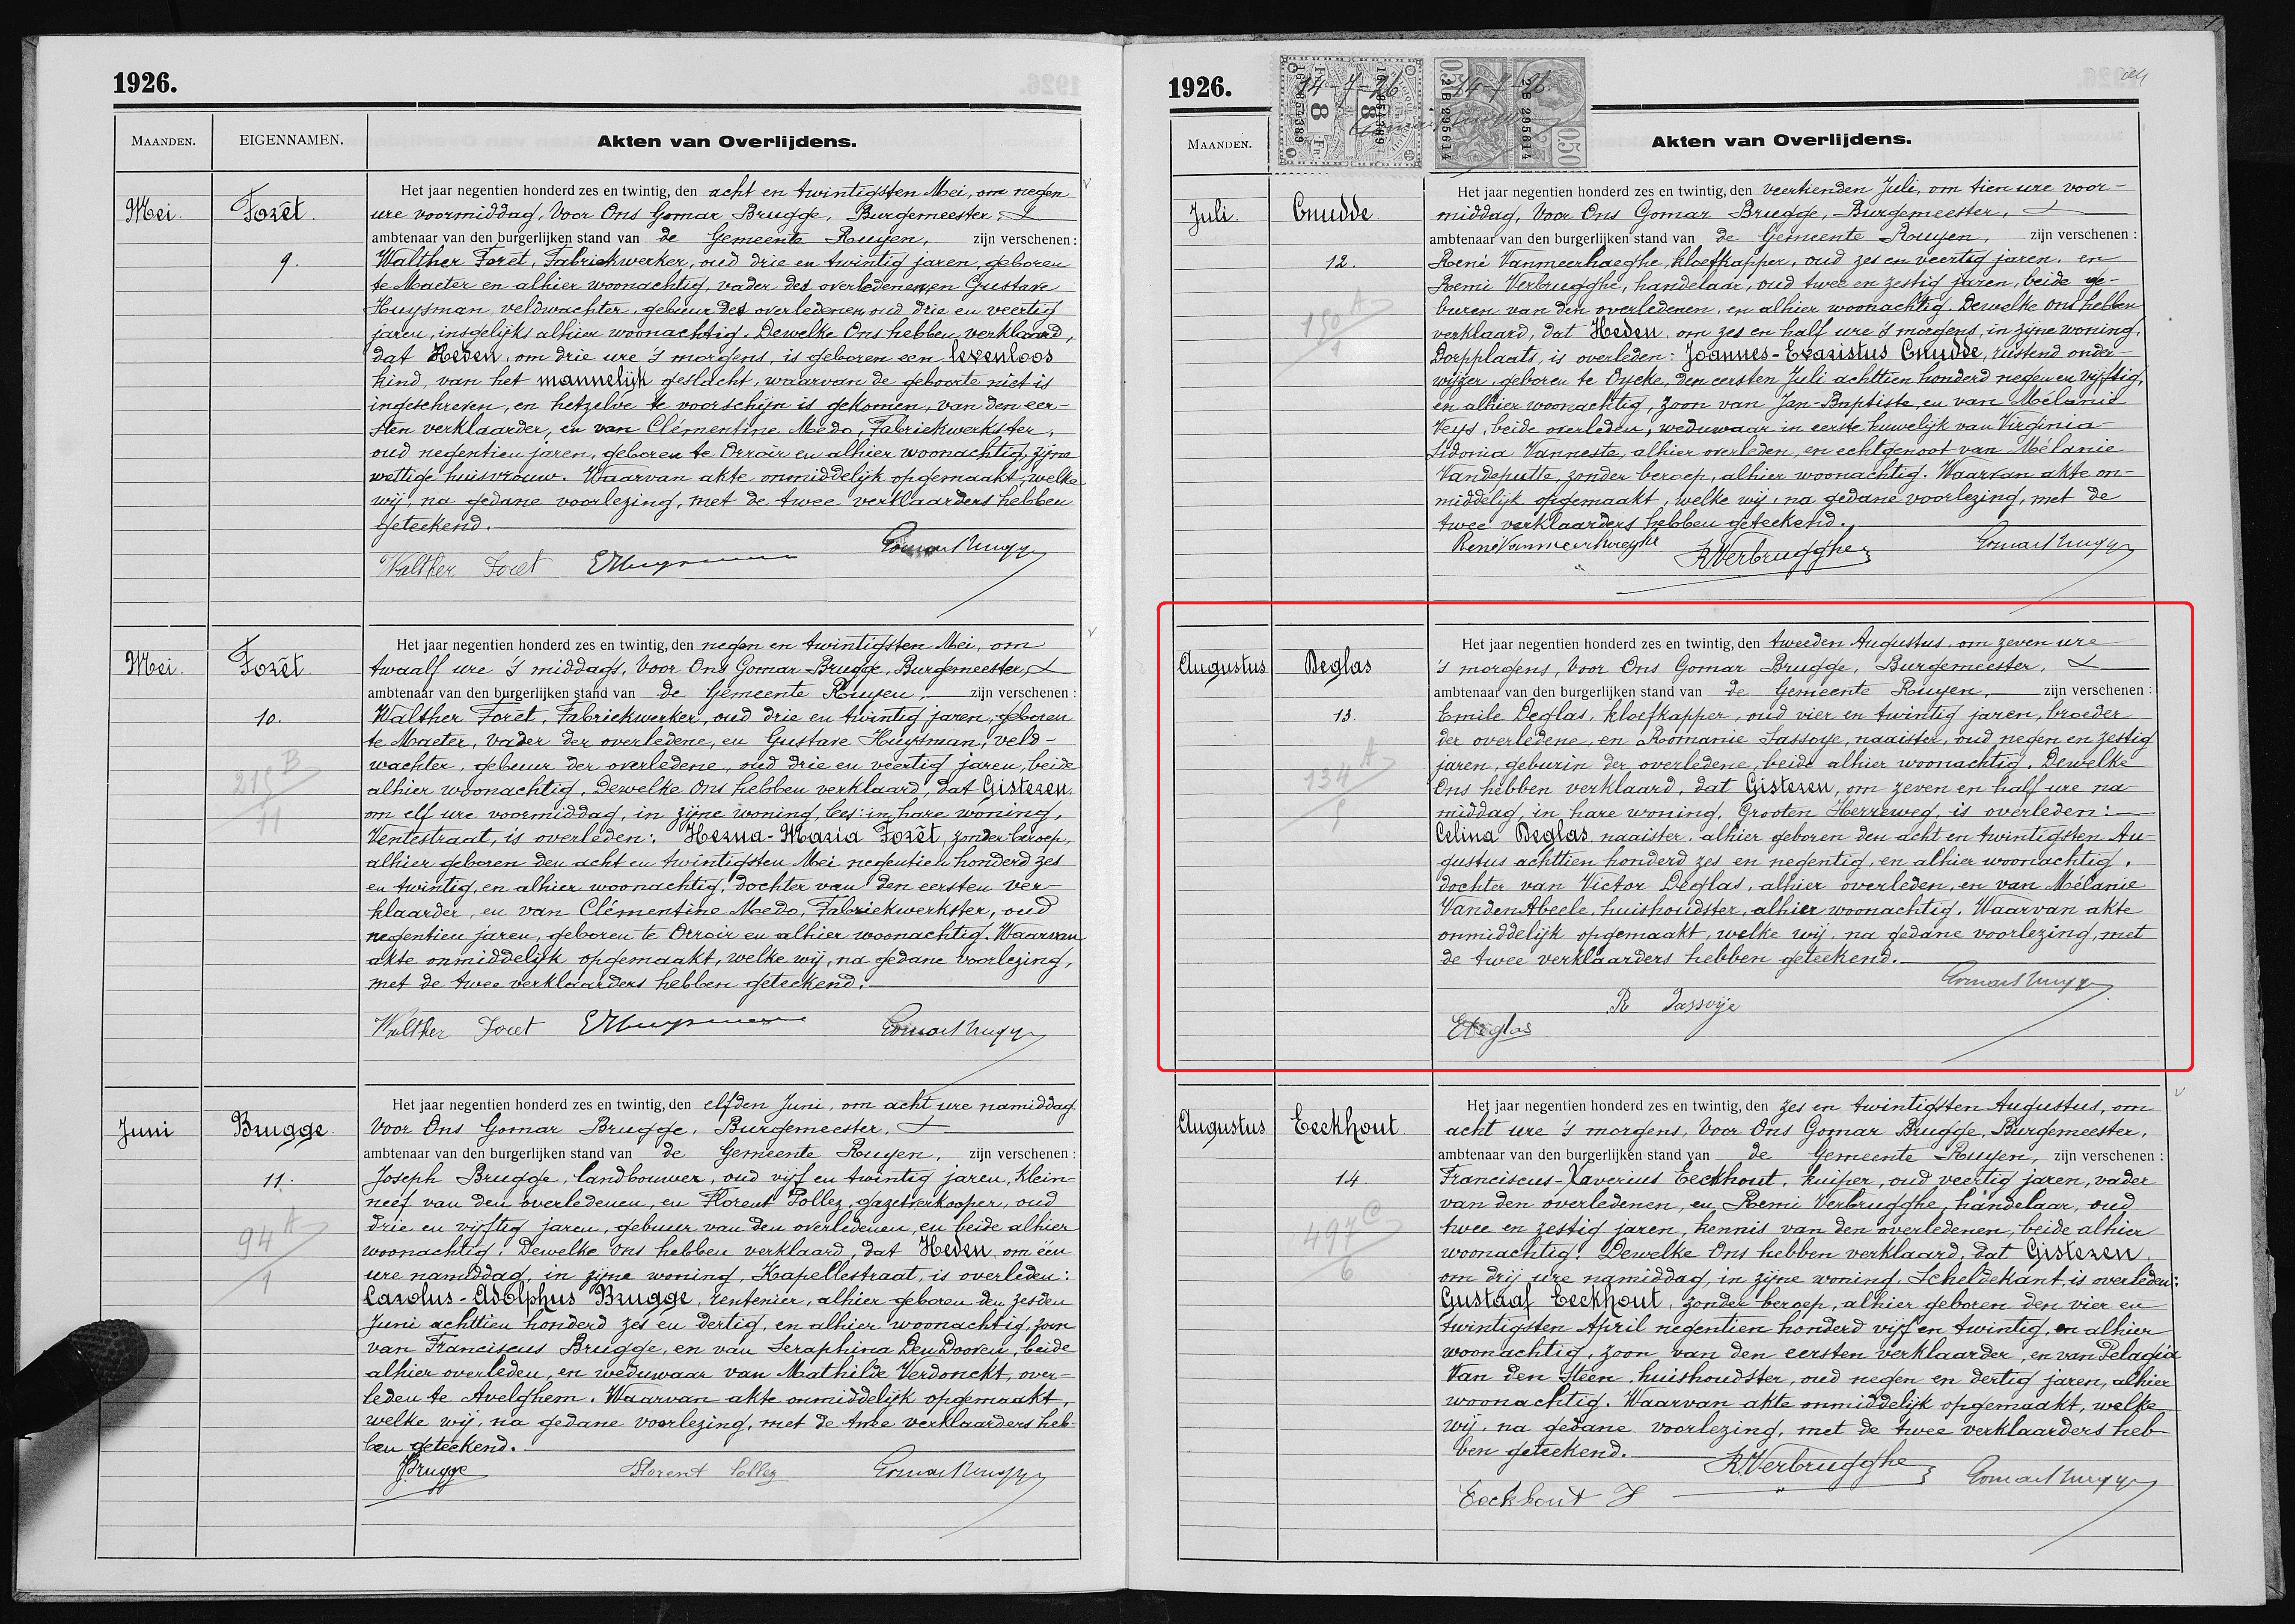 1926.
MAANDEN.
EIGENNAMEN.
Akten van Overlijdens.
Mei.
Forêt.
9.
Het jaar negentien honderd zes en twintig, den acht en twintigsten Mei, om negen
ure voormiddag, Voor Ons Gomar Brugge, Burgemeester,
ambtenaar van den burgerlijken stand van de Gemeente Ruyen, zijn verschenen :
Walther Forêt, Fabriekwerker, oud drie en twintig jaren, geboren
te Maeter en alhier woonachtig, vader des overledenen, en Gustave
Huysman, veldwachter, gebuur des overledenen, oud drie en veertig
jaren, insgelijks alhier woonachtig. Dewelke Ons hebben verklaard,
dat Heden, om drie ure 's morgens, is geboren een levenloos
kind, van het mannelijk geslacht, waarvan de geboorte niet is
ingeschreven, en hetzelve te voorschijn is gekomen, van den eer-
sten verklaarder, en van Clémentine Medo, Fabriekwerkster,
oud negentien jaren, geboren te Orroir en alhier woonachtig, zijne
wettige huisvrouw. Waarvan akte onmiddelijk opgemaakt, welke
wij, na gedane voorlezing, met de twee verklaarders hebben
geteekend.
Walther Foret EHuysman Gomar Brugge
Mei.
Forêt.
10.
215 B
11
Het jaar negentien honderd zes en twintig, den negen en twintigsten Mei, om
twaalf ure 's middags, Voor Ons Gomar Brugge, Burgemeester,
ambtenaar van den burgerlijken stand van de Gemeente Ruyen, zijn verschenen :
Walther Forêt, Fabriekwerker, oud drie en twintig jaren, geboren
te Maeter, vader der overledene, en Gustave Huysman, veld-
wachter, gebuur der overledene, oud drie en veertig jaren, beide
alhier woonachtig. Dewelke Ons hebben verklaard, dat Gisteren,
om elf ure voormiddag, in zijne woning, lees: in hare woning,
Ventestraat, is overleden: Herna-Maria Forêt, zonder beroep,
alhier geboren den acht en twintigsten Mei negentien honderd zes
en twintig, en alhier woonachtig, dochter van den eersten ver-
klaarder, en van Clémentine Medo, Fabriekwerkster, oud
negentien jaren, geboren te Orroir en alhier woonachtig. Waarvan
akte onmiddelijk opgemaakt, welke wij, na gedane voorlezing,
met de twee verklaarders hebben geteekend.
Walther Foret EHuysman Gomar Brugge
Juni
Brugge.
11.
94 A
1
Het jaar negentien honderd zes en twintig, den elfden Juni, om acht ure namiddag.
Voor Ons Gomar Brugge, Burgemeester,
ambtenaar van den burgerlijken stand van de Gemeente Ruyen, zijn verschenen :
Joseph Brugge, landbouwer, oud vijf en twintig jaren, klein-
neef van den overledenen, en Florent Pollez, gazetverkooper, oud
drie en vijftig jaren, gebuur van den overledenen, en beide alhier
woonachtig. Dewelke Ons hebben verklaard, dat Heden, om één
ure namiddag, in zijne woning, Kapellestraat, is overleden:
Carolus-Adolphus Brugge, rentenier, alhier geboren den zesden
Juni achttien honderd zes en dertig, en alhier woonachtig, zoon
van Franciscus Brugge, en van Seraphina Den Dooven, beide
alhier overleden, en weduwaar van Mathilde Verdonckt, over-
leden te Avelghem. Waarvan akte onmiddelijk opgemaakt,
welke wij, na gedane voorlezing, met de twee verklaarders heb-
ben geteekend.
JBrugge Florent Pollez Gomar Brugge
1926.
14-7-26
14-7-26
MAANDEN.
Akten van Overlijdens.
Juli.
Cnudde
12.
150 A
1
Het jaar negentien honderd zes en twintig, den veertienden Juli, om tien ure voor-
middag, Voor Ons Gomar Brugge, Burgemeester,
ambtenaar van den burgerlijken stand van de Gemeente Ruyen, zijn verschenen :
René Vanmeerhaeghe, kloefkapper, oud zes en veertig jaren, en
Remi Verbrugghe, handelaar, oud twee en zestig jaren, beide ge-
buren van den overledenen, en alhier woonachtig. Dewelke Ons hebben
verklaard, dat Heden, om zes en half ure 's morgens, in zijne woning,
Dorpplaats, is overleden: Joannes-Evaristus Cnudde, rustend onder-
wijzer, geboren te Oycke, den eersten Juli achttien honderd negen en vijftig,
en alhier woonachtig, zoon van Jan-Baptiste, en van Mélanie
Veys, beide overleden, weduwaar in eerste huwelijk van Virginia-
Sidonia Vanneste, alhier overleden, en echtgenoot van Mélanie
Vandeputte, zonder beroep, alhier woonachtig. Waarvan akte on-
middelijk opgemaakt, welke wij, na gedane voorlezing, met de
twee verklaarders hebben geteekend.
René Vanmeerhaeghe R.Verbrugghe Gomar Brugge
Augustus
Deglas
13.
134 A
5
Het jaar negentien honderd zes en twintig, den tweeden Augustus, om zeven ure
's morgens, Voor Ons Gomar Brugge, Burgemeester,
ambtenaar van den burgerlijken stand van de Gemeente Ruyen, zijn verschenen :
Emile Deglas, kloefkapper, oud vier en twintig jaren, broeder
der overledene, en Romanie Sassoye, naaister, oud negen en zestig
jaren, geburin der overledene, beide alhier woonachtig. Dewelke
Ons hebben verklaard, dat Gisteren, om zeven en half ure na-
middag, in hare woning, Grooten Herreweg, is overleden:
Celina Deglas, naaister, alhier geboren den acht en twintigsten Au-
gustus achttien honderd zes en negentig, en alhier woonachtig,
dochter van Victor Deglas, alhier overleden, en van Mélanie
VandenAbeele, huishoudster, alhier woonachtig. Waarvan akte
onmiddelijk opgemaakt, welke wij, na gedane voorlezing, met
de twee verklaarders hebben geteekend.
Gomar Brugge
R Sassoije
EDeglas
Augustus
Eeckhout.
14.
497 C
6
Het jaar negentien honderd zes en twintig, den zes en twintigsten Augustus, om
acht ure 's morgens, Voor Ons Gomar Brugge, Burgemeester,
ambtenaar van den burgerlijken stand van de Gemeente Ruyen, zijn verschenen :
Franciscus-Xaverius Eeckhout, kuiper, oud veertig jaren, vader
van den overledenen, en Remi Verbrugghe, handelaar, oud
twee en zestig jaren, kennis van den overledenen, beide alhier
woonachtig. Dewelke Ons hebben verklaard, dat Gisteren,
om drij ure namiddag, in zijne woning, Scheldekant, is overleden:
Gustaaf Eeckhout, zonder beroep, alhier geboren den vier en
twintigsten April negentien honderd vijf en twintig, en alhier
woonachtig, zoon van den eersten verklaarder, en van Pelagia
Van den Steen, huishoudster, oud negen en dertig jaren, alhier
woonachtig. Waarvan akte onmiddelijk opgemaakt, welke
wij, na gedane voorlezing, met de twee verklaarders heb-
ben geteekend.
R.Verbrugghe Gomar Brugge
Eeckhout F